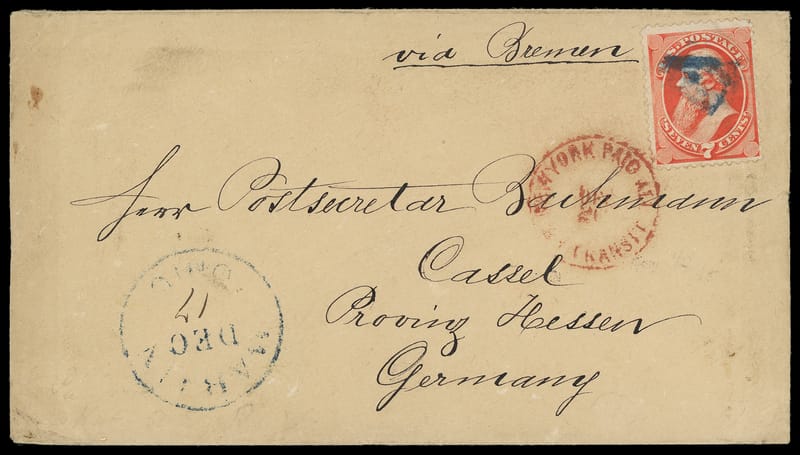 via Bremen
U.S. POSTAGE
SEVEN 7 CENTS
NEW YORK PAID ALL
BR. TRANSIT
Herr Postsecretar Bachmann
Cassel
Provinz Hessen
Germany
17
DEC